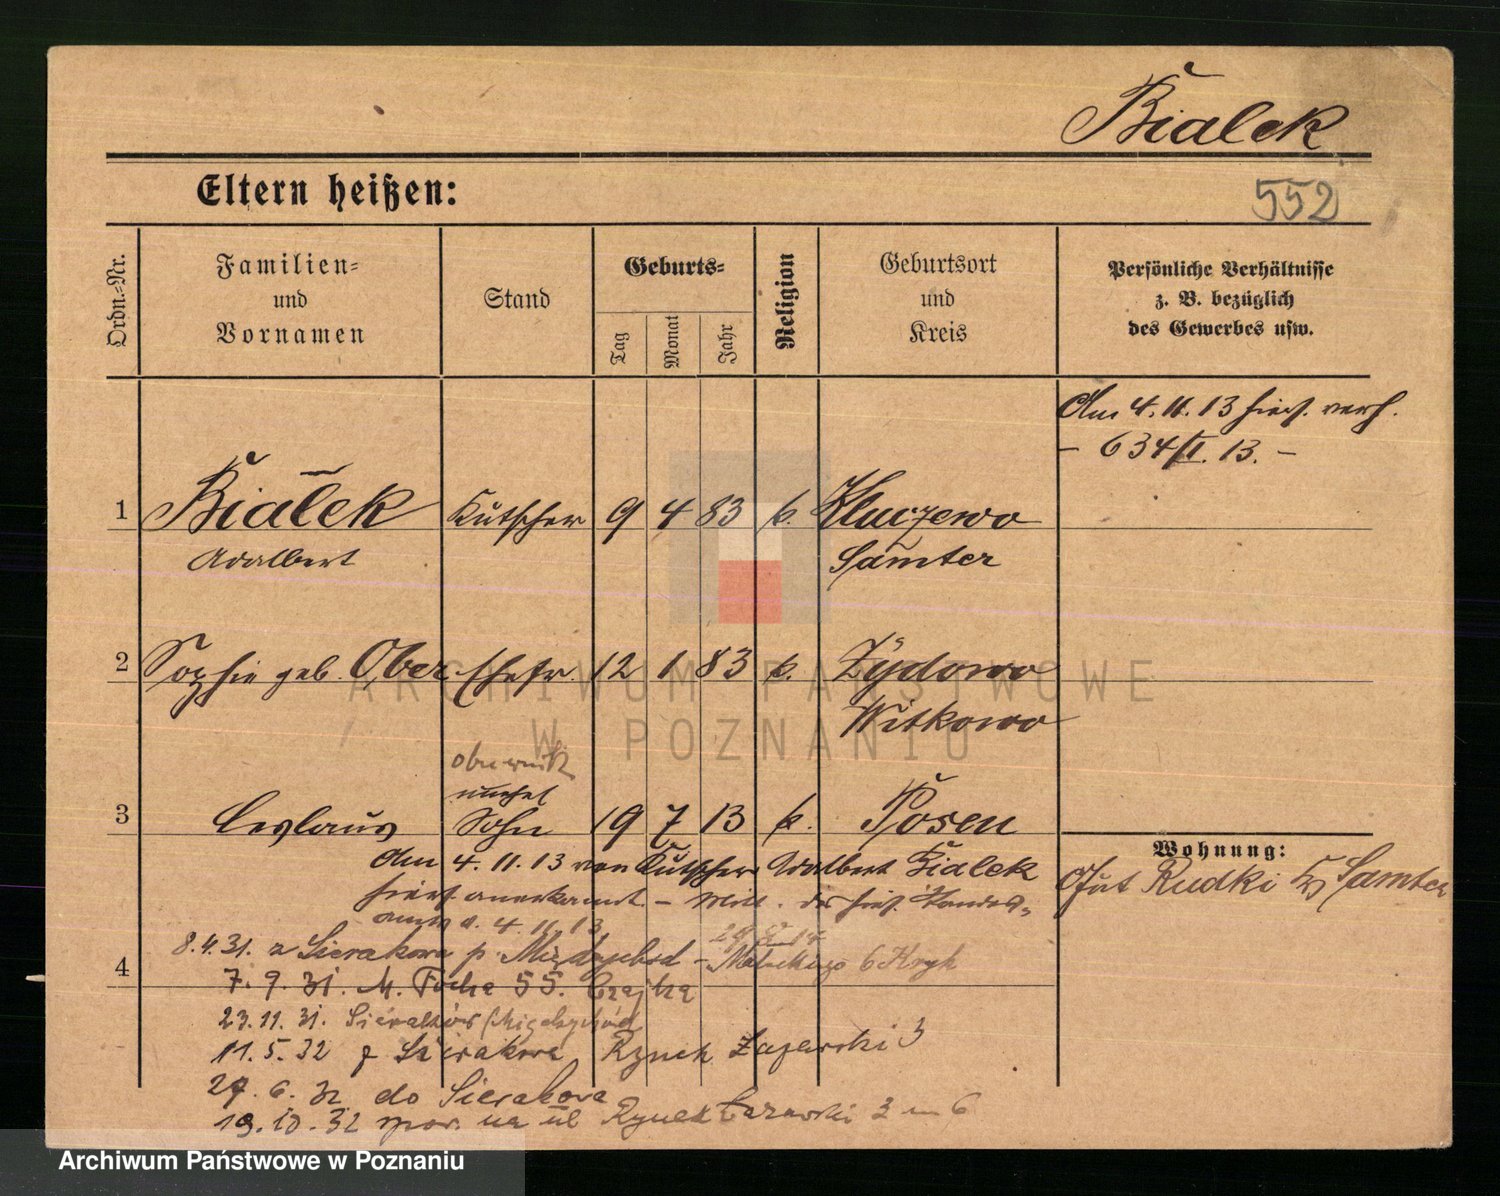 Bialek
Eltern heißen:
552
Ordn.-Nr.
Familien-
und
Vornamen
Stand
Geburts-
Tag
Monat
Jahr
Religion
Geburtsort
und
Kreis
Persönliche Verhältnisse
z. B. bezüglich
des Gewerbes usw.
Am 4.11.13 hier verh.
- 634/II. 13. -
1 Bialek Kutscher 9 4 83 k. Kluczewo
Adalbert Samter
2 Sophie geb. Ober Ehefr. 12 1 83 k. Zydowo
Witkowo
unehel
3 Ceslaus Sohn 19 7 13 k. Posen
Am 4.11.13 von Kutscher Adalbert Bialek
hier anerkannt -
4.11.13
Wohnung:
Rudki Samter
4
8.4.31. z Sierakowa p. Międzychód - 6
7.9.31. M. Focha 55. Czajka
23.11.31. Sieraków
11.5.32 z Sierakowa Rynek Łazarski 3
29.6.32 do Sierakowa
19.10.32 na ul Rynek Łazarski 3 m 6
ARCHIWUM PAŃSTWOWE
W POZNANIU
Archiwum Państwowe w Poznaniu